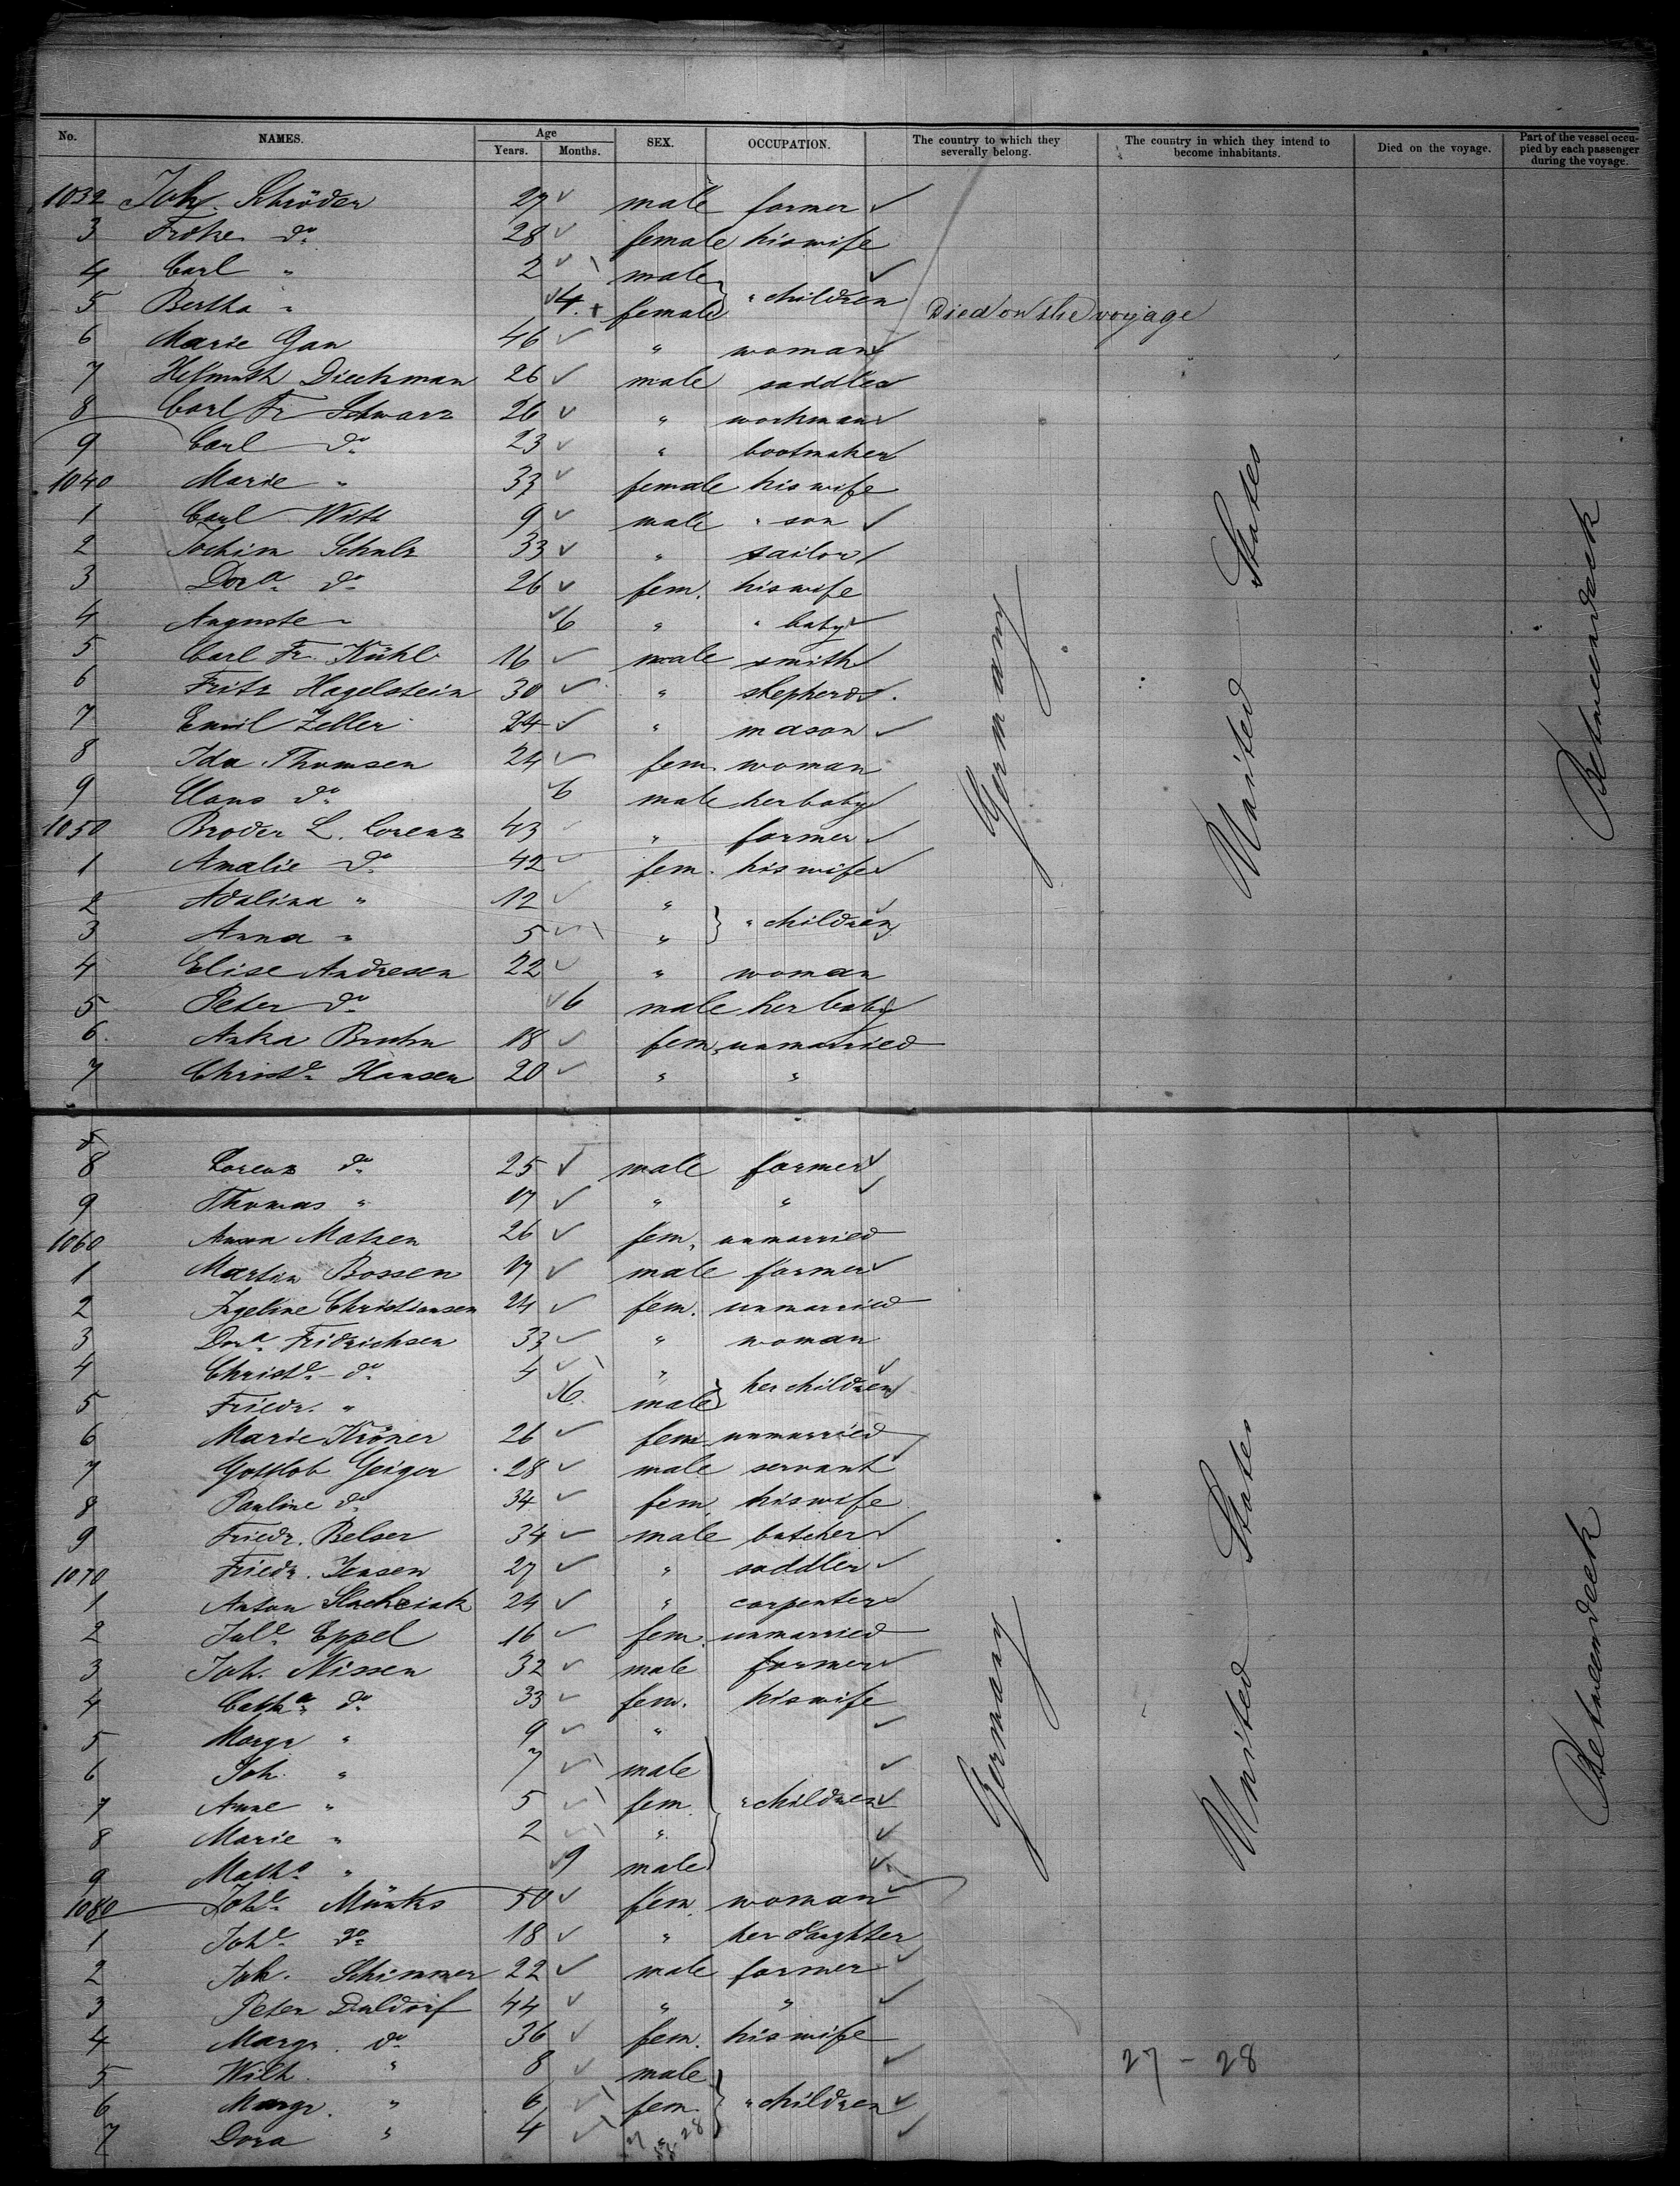 No. NAMES. Age Years. Months. SEX. OCCUPATION. The country to which they severally belong. The country in which they intend to become inhabitants. Died on the voyage. Part of the vessel occupied by each passenger during the voyage.
1032 Joh. Schröder 27 male farmer
3 Frdke do 28 female his wife
4 Carl " 2 male
5 Bertha " 4 female " children Died on the voyage
6 Marie Gau 46 " woman
7 Helmuth Dieckman 26 male saddler
8 Carl Fr Schwarz 26 " workman
9 Carl do 23 " bootmaker
1040 Marie " 33 female his wife
1 Carl Witt 9 male " son
2 Jochim Schulz 33 " sailor
3 Dora do 26 fem. his wife
4 Auguste " 6 " " baby
5 Carl Fr. Kühl 16 male smith
6 Fritz Hagelstein 30 " shepherd
7 Emil Zeller 24 " mason
8 Ida Thomsen 24 fem. woman
9 Claus do 6 male her baby
1050 Broder L. Lorenz 43 " farmer
1 Amalie do 42 fem. his wife
2 Adalina " 12 "
3 Anna " 5 " " children
4 Elise Andresen 22 " woman
5 Peter do 6 male her baby
6 Anka Bruhn 18 fem. unmarried
7 Christe Hansen 20 " "
Germany
United States
Betweendeck
8 Lorenz do 25 male farmer
9 Thomas " 17 " "
1060 Anna Matzen 26 fem. unmarried
1 Martin Bossen 17 male farmer
2 Ingeline Christiansen 24 fem. unmarried
3 Dora Fridrichsen 33 " woman
4 Christe do 4 "
5 Friedr. " 6 male her children
6 Marie Kröner 26 fem unmarried
7 Gottlob Geiger 28 male servant
8 Pauline do 34 fem his wife
9 Friedr. Belser 34 male butcher
1070 Friedr. Jensen 27 " saddler
1 Anton 24 " carpenter
2 Jule Eppel 16 fem. unmarried
3 Joh. Nissen 32 male farmer
4 Catha do 33 fem. his wife
5 Margr " 9 "
6 Joh. " 7 male
7 Anne " 5 fem. " children
8 Marie " 2 "
9 Maths " 9 male
1080 Johe Münks 50 fem. woman
1 Johe do 18 " her daughter
2 Joh. Schimmer 22 male farmer
3 Peter Daldorf 44 " "
4 Margr. do 36 fem. his wife
5 Wilh. " 8 male
6 Margr. " 6 fem. " children
7 Dora " 4 "
Germany
United States
Betweendeck
27 - 28